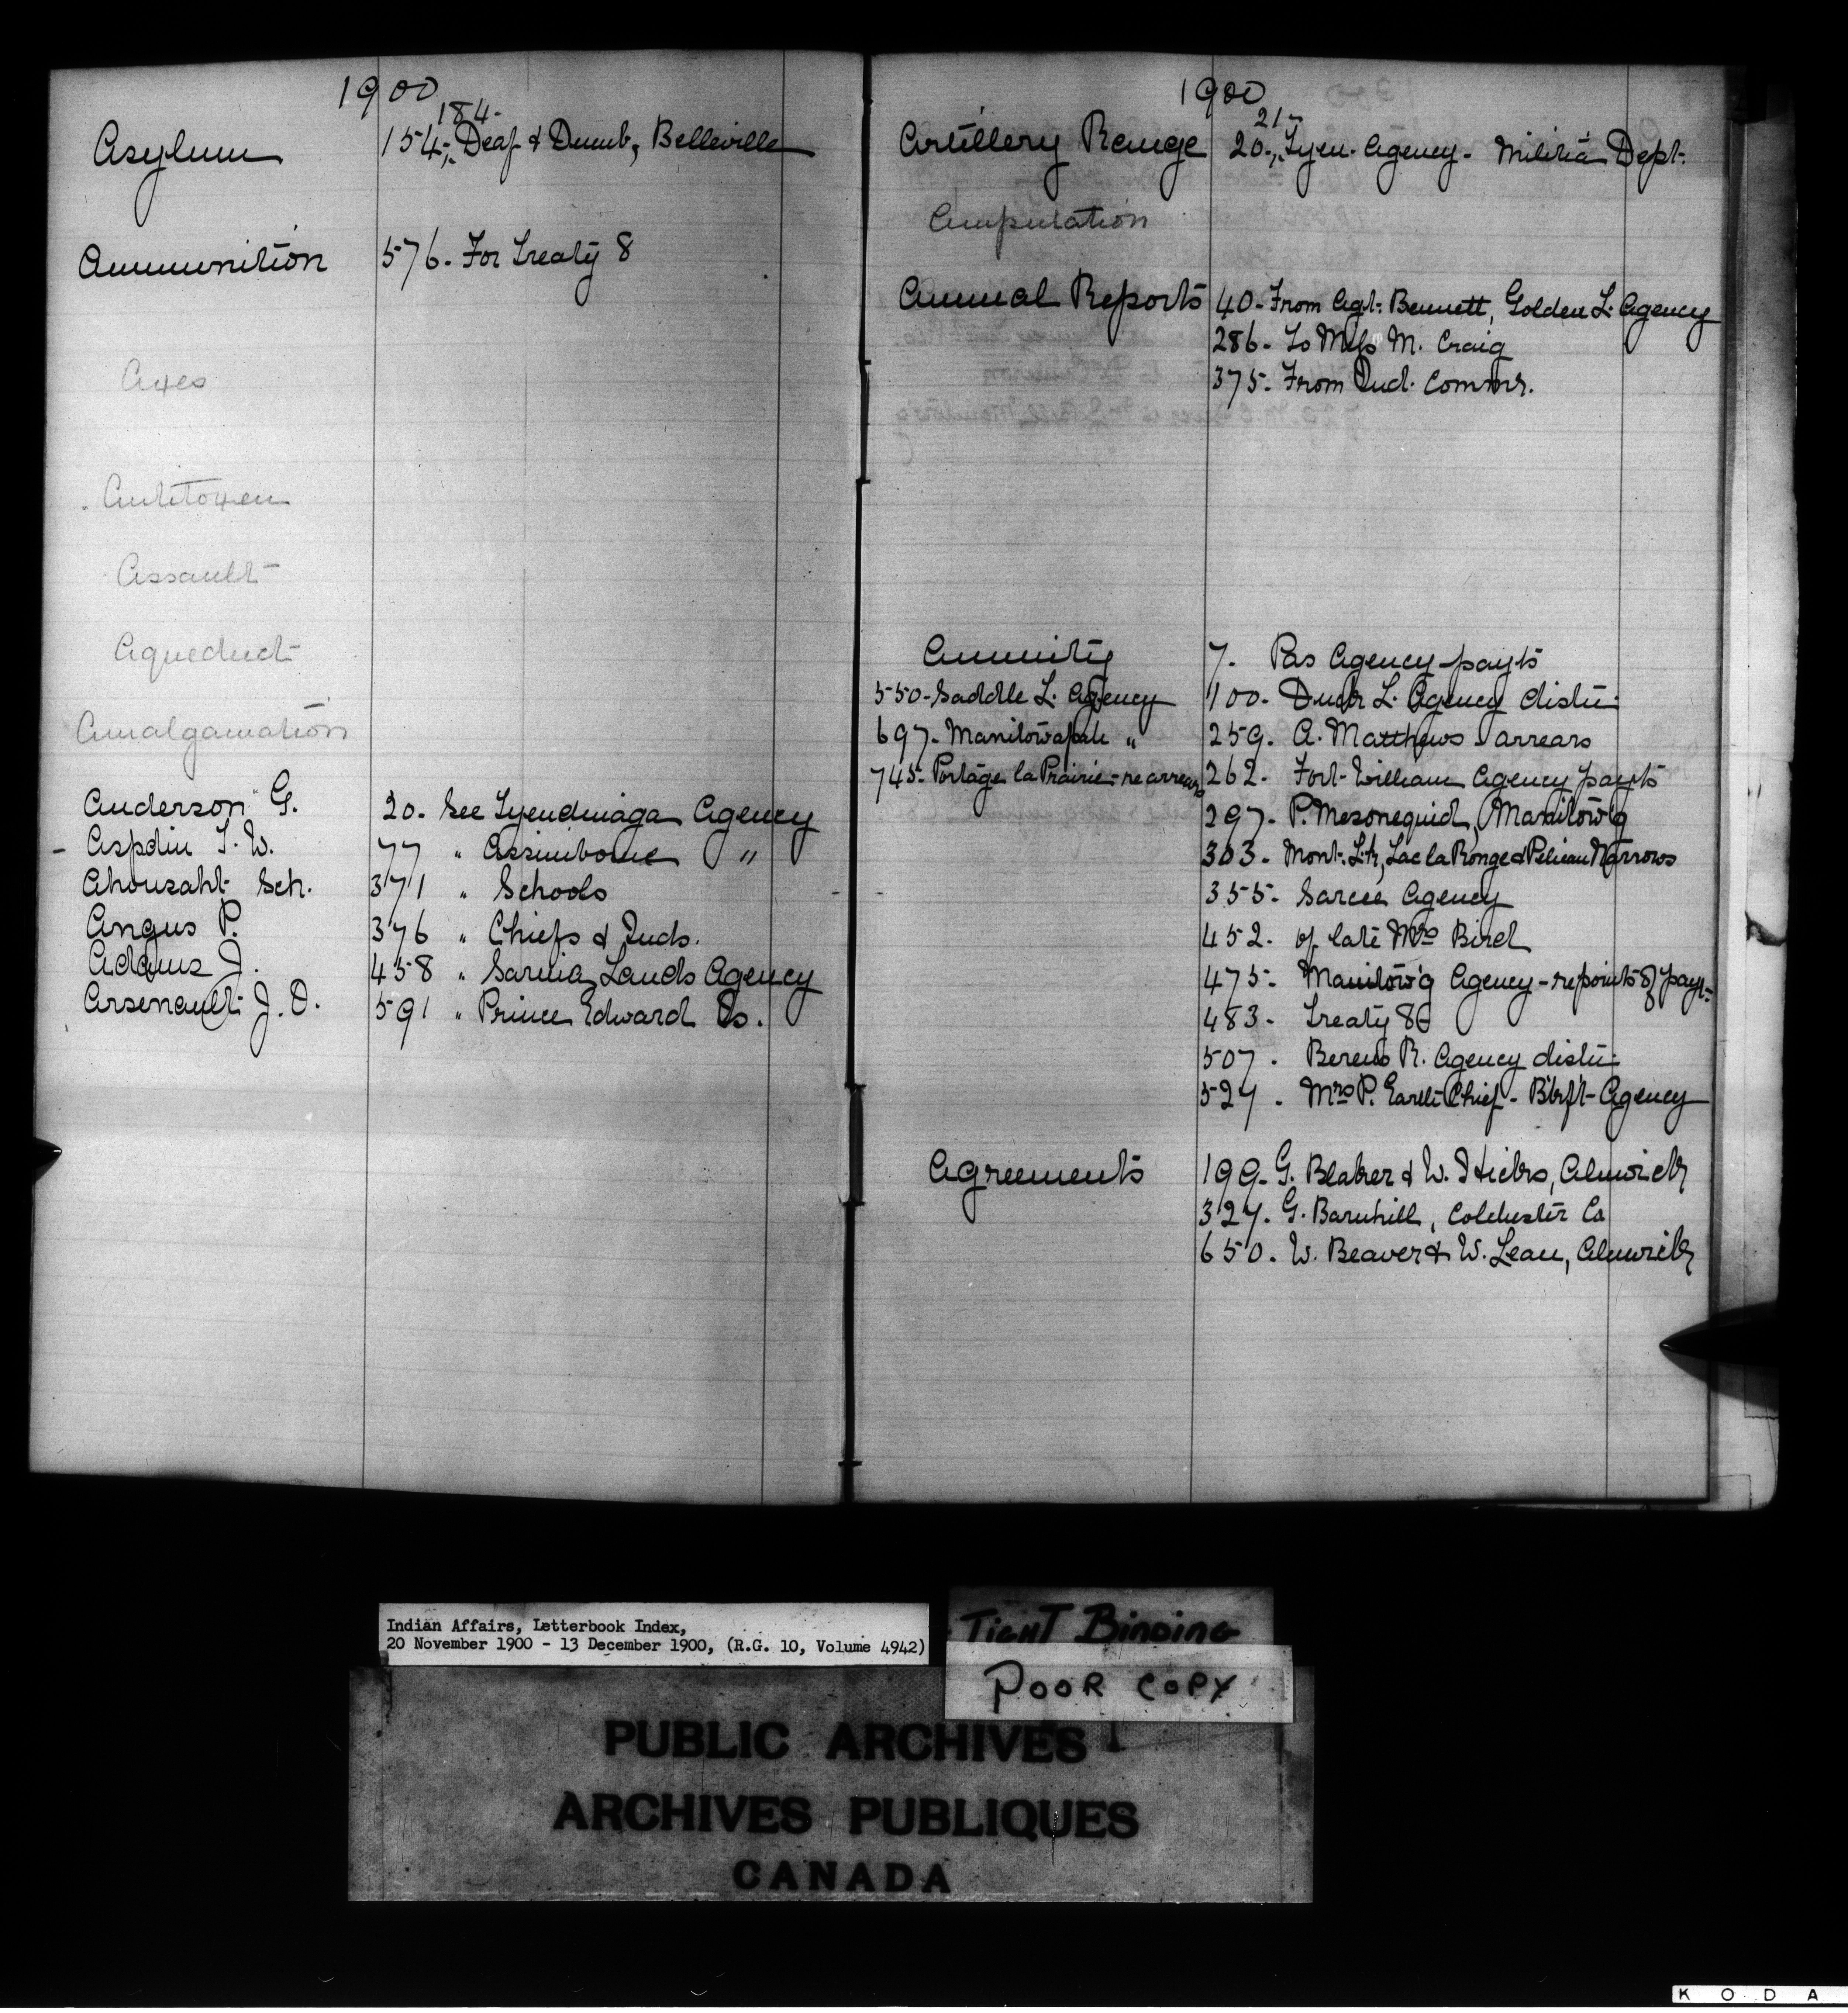 1900
184-
Asylum 154-, Deaf & Dumb, Belleville
Ammunition 576. For Treaty 8
Axes
Antitoxen
Assault
Aqueduct
Amalgamation
Anderson G. 20. See Tyendinaga Agency
- Aspdin T. W. 77 " Assiniboine "
Ahousaht Sch. 371 " Schools
Angus P. 376 " Chiefs & Inds.
Adams J. 458 " Sarnia Lands Agency
Arsenault J. O. 591 " Prince Edward Is.
1900
21-
Artillery Range 20-, Tyen. Agency - Militia Dept.
Amputation
Annual Reports 40- From Agt. Bennett, Golden L. Agency
286- To Miss M. Craig
375- From Ind. Commr.
Annuity 7. Pas Agency payts
550- Saddle L. Agency 100- Duck L. Agency distn:
697- Manitowapah " 259. A. Matthews arrears
745- Portage la Prairie - re arrears 262- Fort William Agency payts
297- P. Mesonequid, Manitow'g
303- Mont. L., Lac la Ronge & Pelican Narrows
355- Sarcee Agency
452- of late Mrs Bird
475- Manitow'g Agency - re points of payt-
483- Treaty 8
507. Berens R. Agency distn:
527. Mrs P. Earth Chief - Blkft Agency
Agreements 199- G. Blaker & W. Hicks, Alnwick
327. G. Barnhill, Colchester Co
650. W. Beaver & W. Lean, Alnwick
Indian Affairs, Letterbook Index,
20 November 1900 - 13 December 1900, (R.G. 10, Volume 4942)
TIGHT BINDING
POOR COPY
PUBLIC ARCHIVES
ARCHIVES PUBLIQUES
CANADA
K O D A